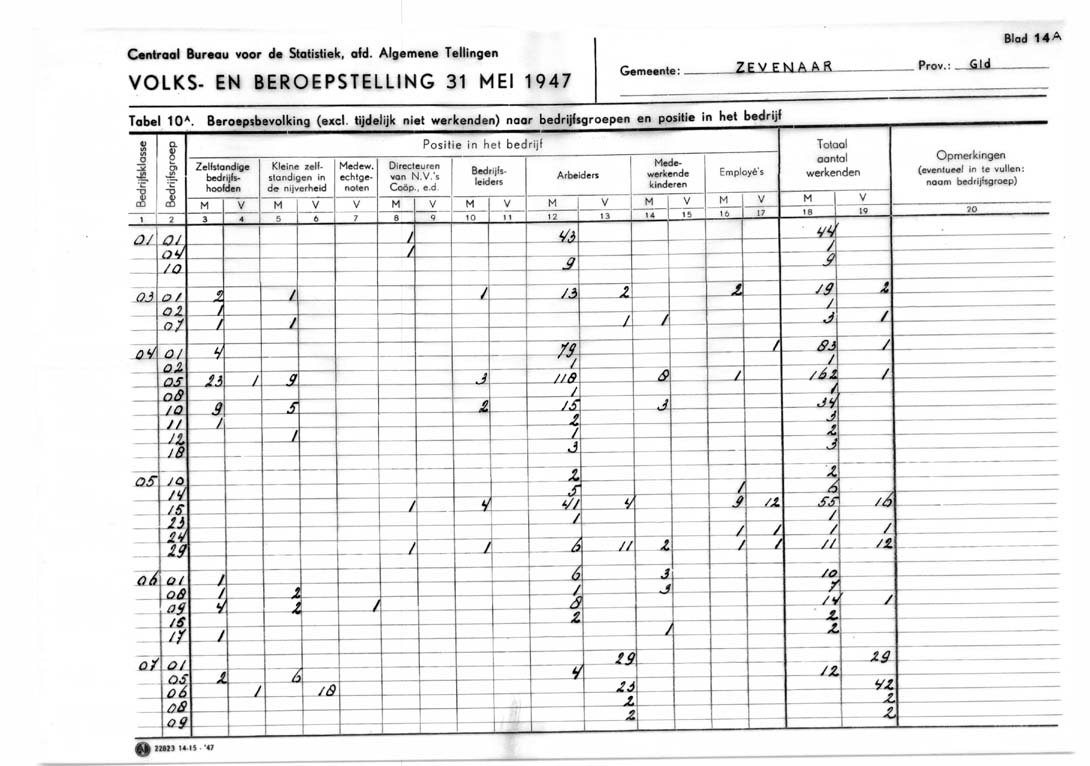 Blad 14A
Centraal Bureau voor de Statistiek, afd. Algemene Tellingen
VOLKS- EN BEROEPSTELLING 31 MEI 1947
Gemeente: ZEVENAAR Prov.: Gld
Tabel 10A. Beroepsbevolking (excl. tijdelijk niet werkenden) naar bedrijfsgroepen en positie in het bedrijf
Bedrijfsklasse Bedrijfsgroep Positie in het bedrijf Totaal aantal werkenden Opmerkingen (eventueel in te vullen: naam bedrijfsgroep)
Zelfstandige bedrijfs-hoofden Kleine zelf-standigen in de nijverheid Medew. echtge-noten Directeuren van N.V.'s Coöp., e.d. Bedrijfs-leiders Arbeiders Mede-werkende kinderen Employé's
M V M V V M V M V M V M V M V M V
1 2 3 4 5 6 7 8 9 10 11 12 13 14 15 16 17 18 19 20
01 01 1 43 44
04 1 1
10 9 9
03 01 2 1 1 13 2 2 19 2
02 1 1
07 1 1 1 1 3 1
04 01 4 79 1 83 1
02 1 1
05 23 1 9 3 118 8 1 162 1
08 1 1
10 9 5 2 15 3 34
11 1 2 3
12 1 1 2
18 3 3
05 10 2 2
14 5 1 6
15 1 4 41 4 9 12 55 16
23 1 1
24 1 1 1 1
29 1 1 6 11 2 1 1 11 12
06 01 1 6 3 10
08 1 2 1 3 7
09 4 2 1 8 14 1
15 2 2
17 1 1 2
07 01 29 29
05 2 6 4 12
06 1 18 23 42
08 2 2
09 2 2
22823 14-15 - '47